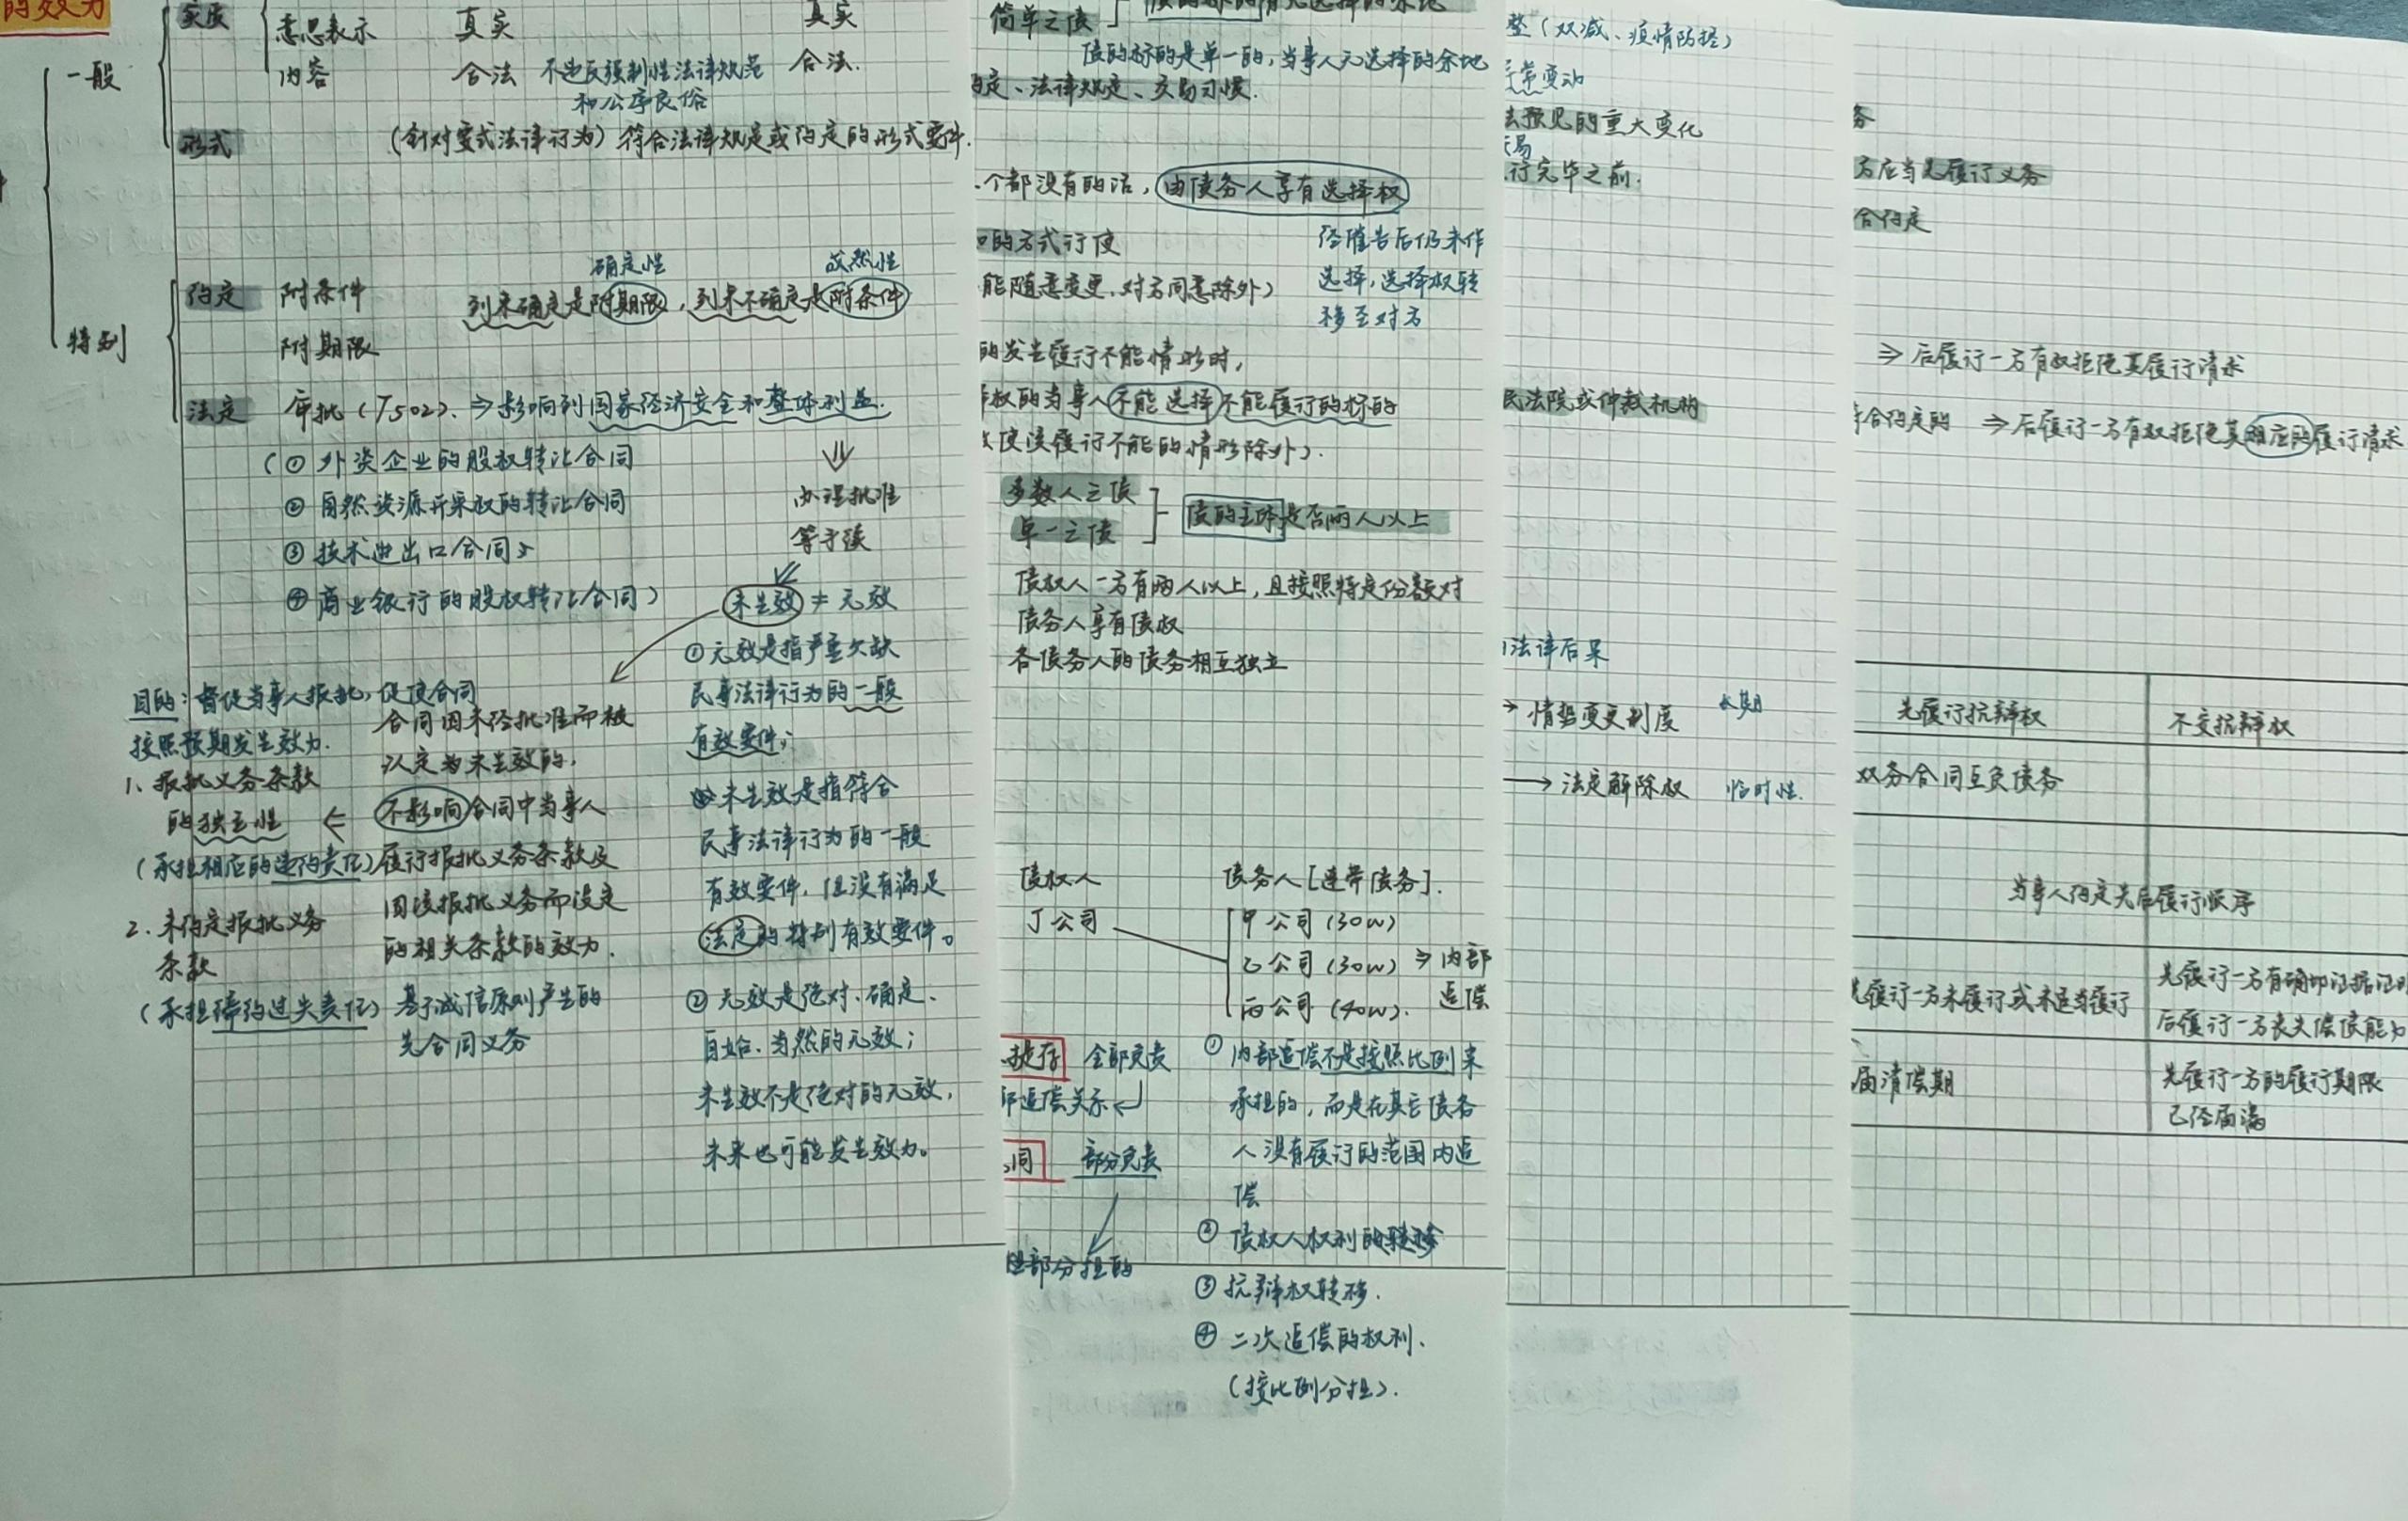 的效力
实质
意思表示 真实 真实
内容 合法 不违反强制性法律规范 合法.
和公序良俗
一般
形式 (针对要式法律行为) 符合法律规定或约定的形式要件.
确定性 或然性
约定 附条件 到来确定是附期限, 到来不确定是附条件
特别 附期限
法定 审批 (T502). ⇒ 影响到国家经济安全和整体利益.
(① 外资企业的股权转让合同
② 自然资源开采权的转让合同
③ 技术进出口合同
④ 商业银行的股权转让合同)
⇓
办理批准
等手续
未生效 ≠ 无效
① 无效是指严重欠缺
民事法律行为的一般
有效要件;
未生效是指符合
民事法律行为的一般
有效要件, 但没有满足
法定的特别有效要件。
② 无效是绝对、确定、
自始、当然的无效;
未生效不是绝对的无效,
未来也可能发生效力。
目的: 督促当事人报批, 促使合同
按照预期发生效力.
1. 报批义务条款
的独立性 ⇐
(承担相应的违约责任)
2. 未约定报批义务
条款
(承担缔约过失责任)
合同因未经批准而被
认定为未生效的,
不影响合同中当事人
履行报批义务条款及
因该报批义务而设定
的相关条款的效力.
基于诚信原则产生的
先合同义务
简单之债
债的标的是单一的, 当事人无选择的余地
约定、法律规定、交易习惯.
个都没有的话, 由债务人享有选择权
的方式行使
能随意变更, 对方同意除外)
经催告后仍未作
选择, 选择权转
移至对方
的发生履行不能情形时,
择权的当事人不能选择不能履行的标的
使该履行不能的情形除外).
多数人之债
单一之债
债的主体是否两人以上
债权人一方有两人以上, 且按照特定份额对
债务人享有债权
各债务人的债务相互独立
债权人 债务人 [连带债务].
丁公司 甲公司 (30w)
乙公司 (30w) ⇒ 内部
丙公司 (40w). 追偿
提存 全部免责
部追偿关系
同 部分免责
部分担的
① 内部追偿不是按照比例来
承担的, 而是在其它债务
人没有履行的范围内追
偿
② 债权人权利的转移
③ 抗辩权转移.
④ 二次追偿的权利.
(按比例分担).
整 (双减、疫情防控)
异常变动
法预见的重大变化
易
行完毕之前.
民法院或仲裁机构
法律后果
→ 情势变更制度 长期
→ 法定解除权 临时性.
务
方应当先履行义务
合约定
⇒ 后履行一方有权拒绝其履行请求
符合约定的 ⇒ 后履行一方有权拒绝其相应的履行请求
先履行抗辩权 不安抗辩权
双务合同互负债务
当事人约定先后履行顺序
先履行一方未履行或未适当履行
先履行一方有确切证据证明
后履行一方丧失偿债能力
届清偿期
先履行一方的履行期限
已经届满